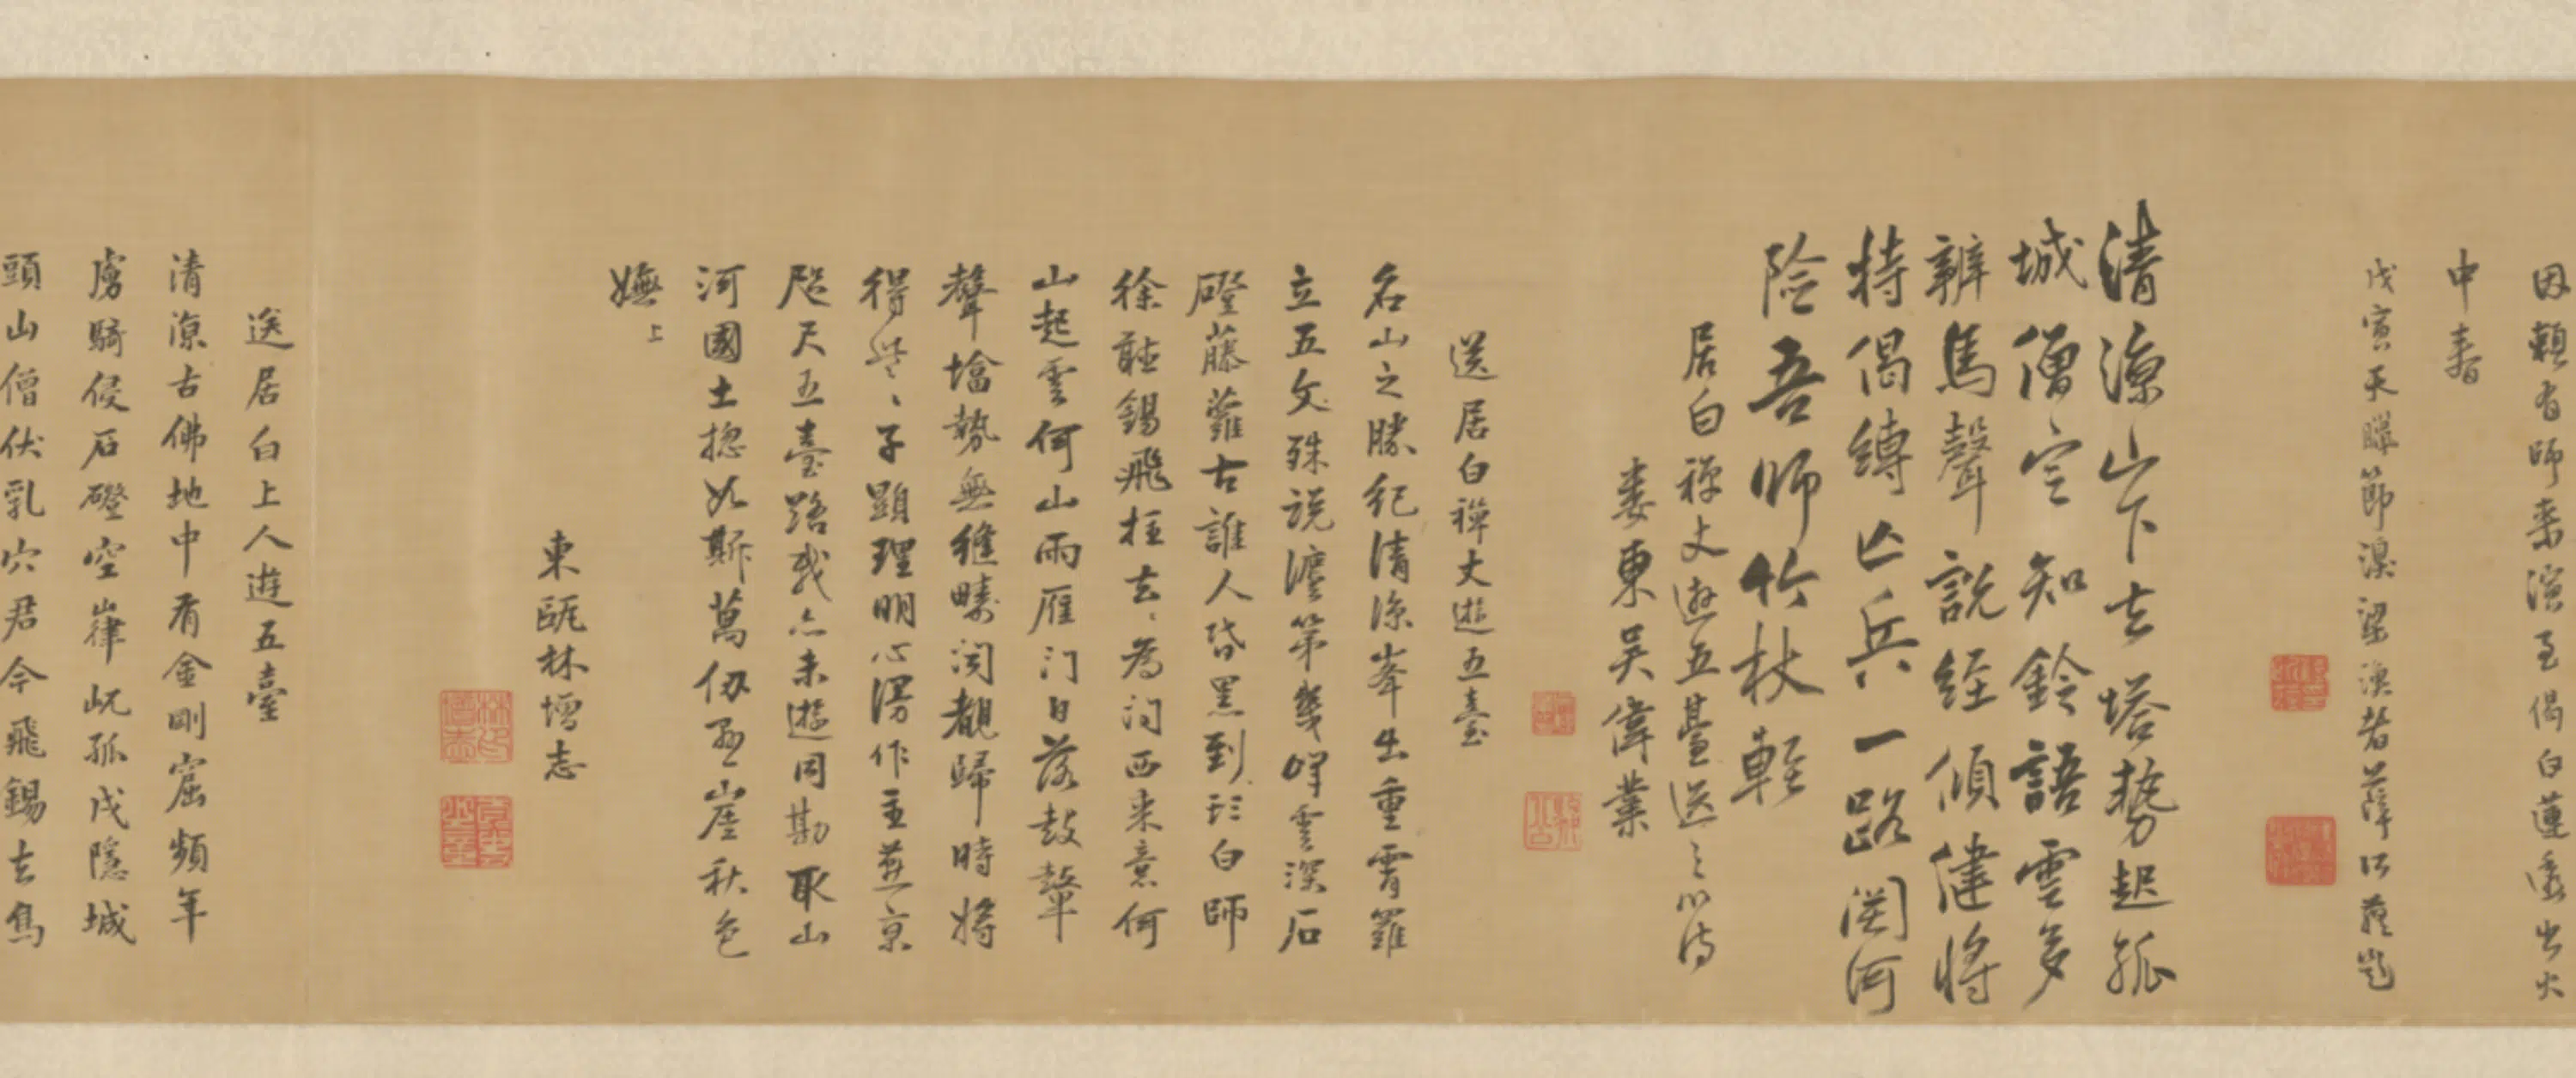 因賴有師乘演至偈白蓮香出火
中春
戊寅天
清涼山下去塔勢起孤
城僧定知鈴語雲多
辨馬聲說經傾健將
持偈縛亡兵一路関河
险吾師竹杖輕
居白禅丈遊五臺送之以诗
婁東吴偉業
送居白禅丈遊五臺
名山之勝纪清涼峯出重霄羅
立五文殊說法第幾峰雲深石
磴藤蘿古誰人昏黑到白師
徐聽錫飛拄去、为问西来意何
山起雲何山雨雁门日落鼓鼙
聲墖勢無疇闵觀歸時將
得、子顕理明心作主燕京
咫尺五臺路我亦未遊同勘取山
河國土揔如斯萬仭懸崖秋色
嫵上
東甌林增志
送居白上人遊五臺
清涼古佛地中有金剛窟頻年
虜騎侵石磴空嵂屼孤戍隱城
頭山僧伏乳穴君今飛錫去鳥